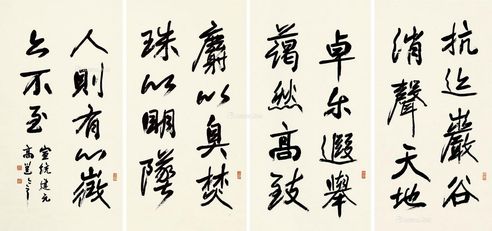 抗迹巖谷
消聲天地
卓尔遐舉
藹然高致
麝以臭焚
珠以明墜
人則有以徵
之不至
宣統建元
高邕之